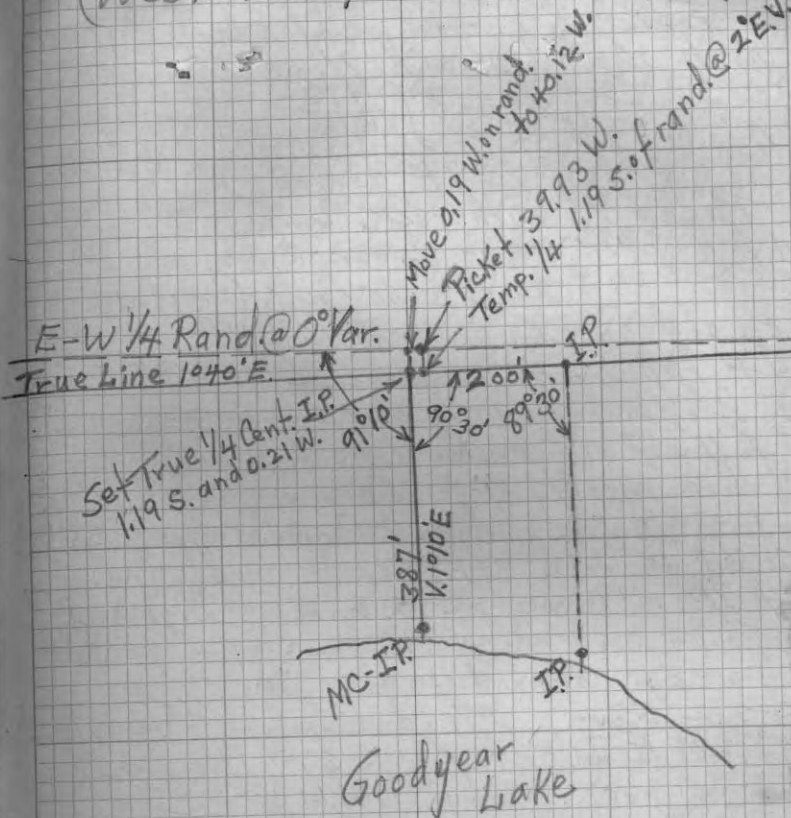 (West
Move 0.19 W. on rand.
to 40.12 W.
Picket 39.93 W.
Temp. 1/4 1.19 S. of rand. @ 2° E.V.
E-W 1/4 Rand. @ 0° Var.
True Line 1°40' E.
I.P.
200'
91°10'
90°
30'
89°30'
Set True 1/4 Cent. I.P.
1.19 S. and 0.21 W.
387'
V. 1°10' E
MC-I.P.
I.P.
Goodyear
Lake